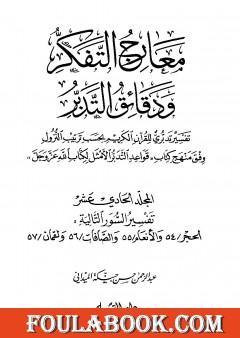 معارج التفكر
ودقائق التدبر
تفسير تدبري للقرآن الكريم بحسب ترتيب النزول
وفق منهج كتاب «قواعد التدبر الأمثل لكتاب الله عز وجل»
المجلد الحادي عشر
تفسير السور التالية:
الحجر/٥٤ والأنعام/٥٥ والصافات/٥٦ ولقمان/٥٧
عبد الرحمن حسن حبنكة الميداني
FOULABOOK.COM